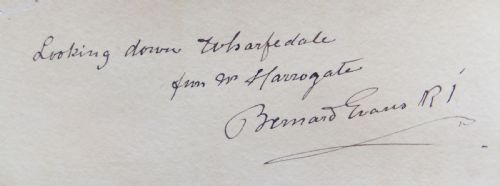 Looking down Wharfedale
from Nr Harrogate
Bernard Evans RI